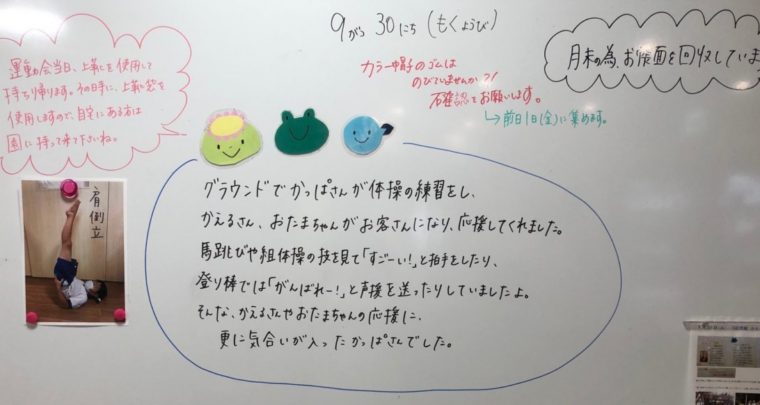 9がつ 30にち (もくようび)
運動会当日、上靴を使用して
持ち帰ります。その時に、上靴袋を
使用しますので、自宅にある方は
園に持って来て下さいね。
カラー帽子のゴムは
のびていませんか?!
確認をお願いします。
↳前日1日(金)に集めます。
月末の為、お帳面を回収していま
肩倒立
グラウンドでかっぱさんが体操の練習をし、
かえるさん、おたまちゃんがお客さんになり、応援してくれました。
馬跳びや組体操の技を見て「すごーい!」と拍手をしたり、
登り棒では「がんばれー!」と声援を送ったりしていましたよ。
そんな、かえるさんやおたまちゃんの応援に、
更に気合いが入ったかっぱさんでした。